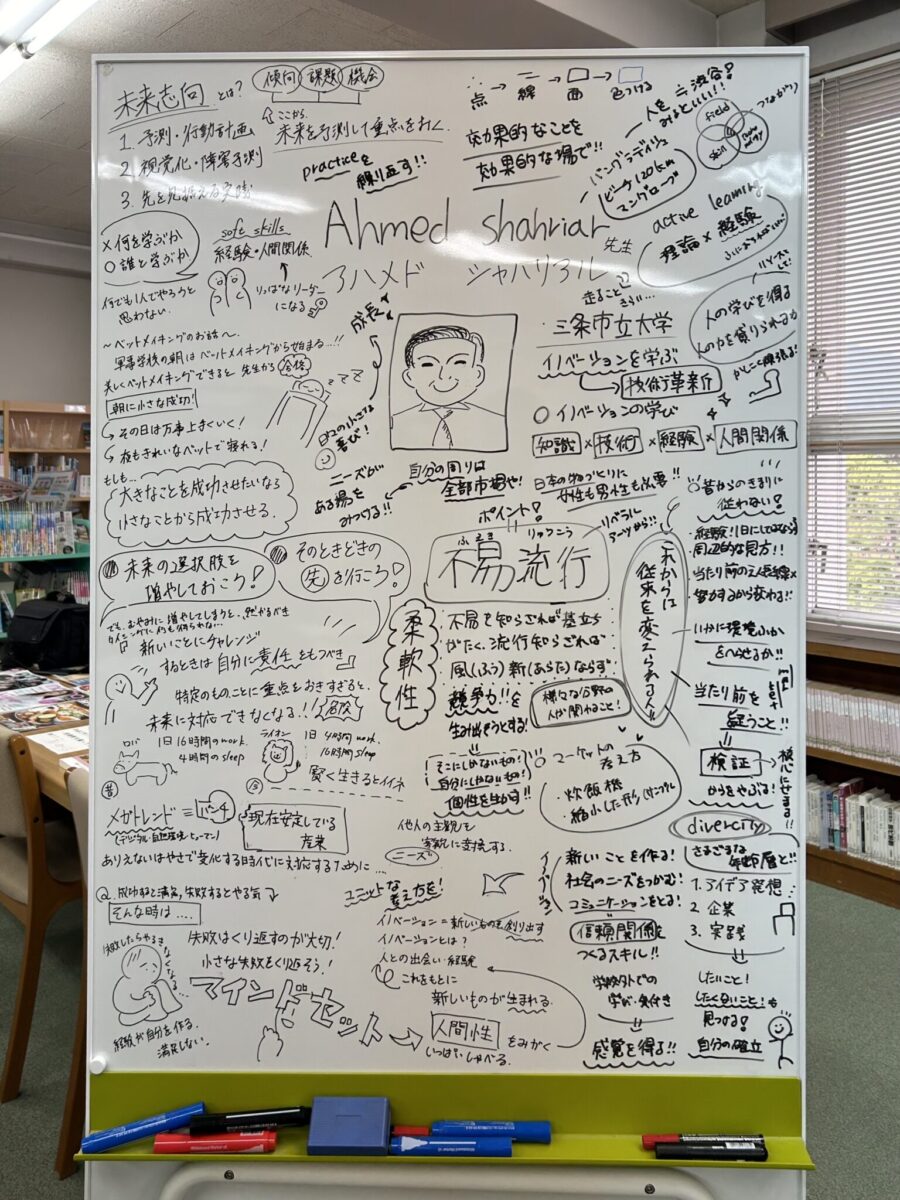 未来志向 とは?
傾向 課題 機会
ここから
未来を予測して重点をおく
1. 予測・行動計画
2. 視覚化・障害予測
3. 先を見据える実践
practiceを
繰り返す!!
点→線→面→色つける
効果的なことを
効果的な場で!!
人を=渋谷!
みるといい!!
バングラディシュ
ビーチ120km
マングローブ
field
skill
つながり
active learning
理論×経験
×何を学ぶか
○誰と学ぶか
soft skills
経験・人間関係
りっぱなリーダー
になる
何でも1人でやろうと
思わない
Ahmed shahriar 先生
アハメド シャハリアル
走ること
きらい…
三条市立大学
イノベーションを学ぶ
技術革新
○イノベーションの学び
知識×技術×経験×人間関係
人の学びを得る
人の力を借りられるか
〜ベットメイキングのお話〜
軍事学校の朝はベットメイキングから始まる…!!
美しくベットメイキングできると先生から合格
朝に小さな成功!
その日は万事上手くいく!
夜もきれいなベットで寝れる!
もしも…
大きなことを成功させたいなら
小さなことから成功させる。
zzz
成長
日々の小さな
喜び!
ニーズが
ある場を
みつける!!
自分の周りは
全部市場や!
日本の物づくりに
女性も男性も必要!!
昔からのきまりに
従わない!
・経験
周辺的な見方!!
・当たり前の
努力するから変わる!!
いかに環境ふか
をへらせるか!!
当たり前を
疑うこと!!
検証
からをやぶる!
核心にせまる!!
ポイント!
リベラル
アーツから!!
ふえき りゅうこう
不易流行
これからは
従来を変えられる人!!
未来の選択肢を
増やしておこう!
そのときどきの
先を行こう!
でも、おやみに増やしてしまうと、然かるべき
タイミングに何も得られない…
新しいことにチャレンジ
するときは自分に責任をもつべき
特定のものごとに重点をおきすぎると、
未来に対応できなくなる!!危険
柔軟性
不易を知らざれば基立ち
がたく、流行知らざれば
風(ふう)新(あらた)ならず
競争力!!を
生み出そうとする!
様々な分野の
人が関わること!
そこにしかないもの!
自分にしかないもの!
個性を生かす!!
マーケットの
考え方
・炊飯機
・縮小した形(サンプル
ロバ
1日16時間のwork
4時間のsleep
昔
ライオン
1日4時間work
16時間sleep
今
賢く生きるとイイネ
メガトレンド=パンチ
(デジタル・自然環境・ヒューマン)
現在安定している
産業
ありえないはやさで変化する時代に対応するために…
他人の主観を
客観に変換する。
ニーズ
Q. 成功すると満足,失敗するとやる気↓
そんな時は….
失敗はくり返すのが大切!
小さな失敗をくり返そう!
失敗したらやるき
なくなる…
経験が自分を作る。
満足しない。
マインドセット
人間性をみがく
いっぱいしゃべる。
ユニットな
考え方を!
イノベーション=新しいものを創り出す
イノベーションとは?
人との出会い・経験
これをもとに
新しいものが生まれる。
イノベーション
新しいことを作る!
社会のニーズをつかむ!
コミュニケーションをとる!
信頼関係を
つくるスキル!!
学校外での
学び・気付き
感覚を得る!!
divercity
さまざまな
年齢層と!!
1. アイデア発想
2. 企業
3. 実践
したいこと!
したくないこと!も
見つける!
自分の確立